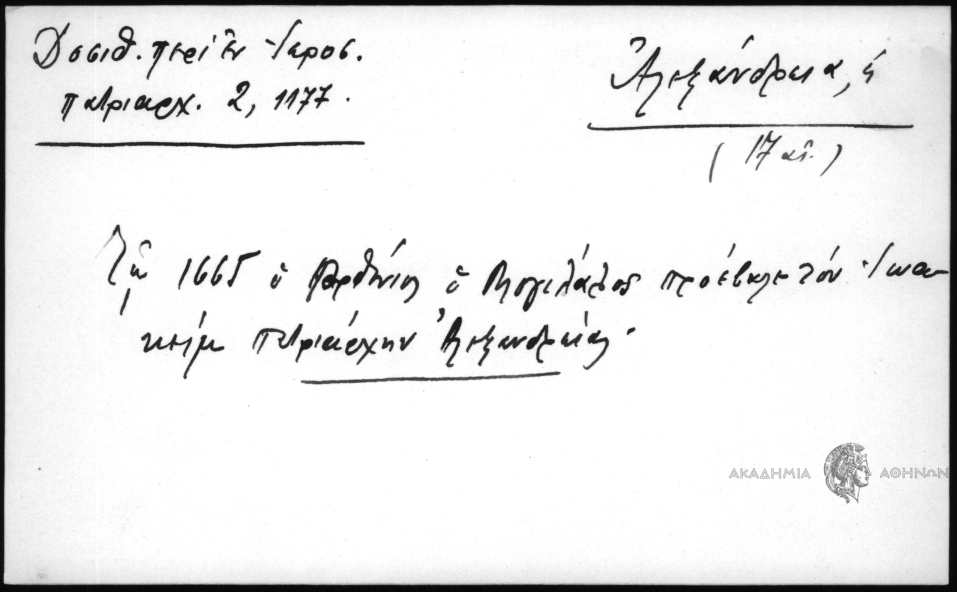 Δοσιθ. περὶ ἐν Ἱεροσ.
πατριαρχ. 2, 1177.
Ἀλεξάνδρεια, ἡ
(17 αἰ.)
Τῷ 1665 ὁ Παρθένιος ὁ προέβαλε τὸν Ἰωα-
κεὶμ Πατριάρχην Ἀλεξανδρείας.
ΑΚΑΔΗΜΙΑ ΑΘΗΝΩΝ